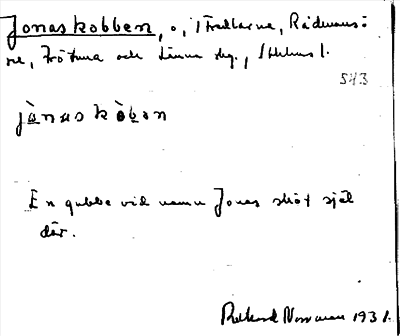 Jonaskobben, ö, i Fredlarna, Rådmansö
sn, Frötuna och Länna skg., Sthlms l.
543
jònaskòbən
En gubbe vid namn Jonas sköt själ
där.
Rickard Norrman 1931.